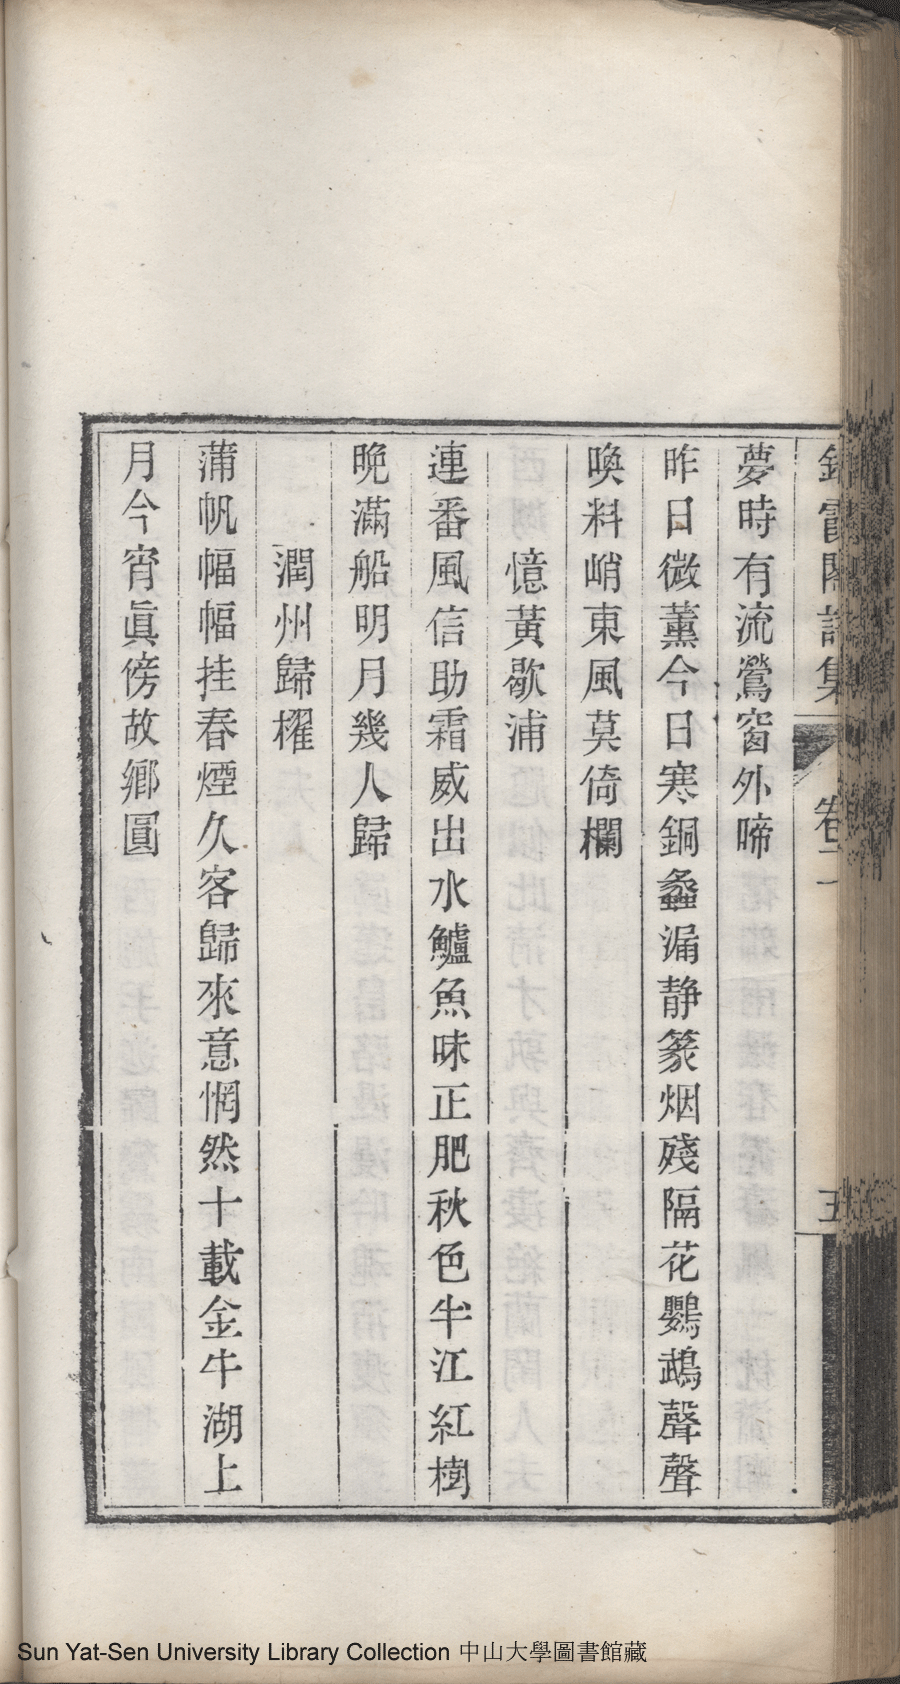 夢時有流鶯窗外啼
昨日微薰今日寒銅蠡漏静篆烟殘隔花鸚鵡聲聲
喚料峭東風莫倚欄
憶黃歇浦
連番風信助霜威出水鱸魚味正肥秋色半江紅樹
晩滿船明月幾人歸
潤州歸櫂
蒲帆幅幅挂春煙久客歸來意惘然十載金牛湖上
月今宵眞傍故鄉圓
Sun Yat-Sen University Library Collection 中山大學圖書館藏